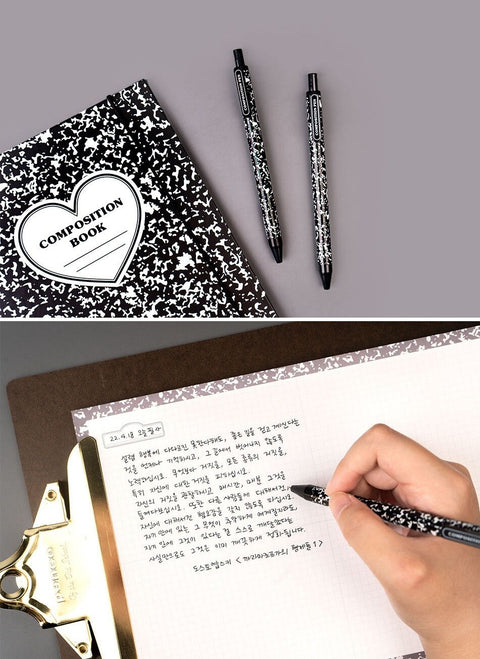 COMPOSITION
BOOK
COMPOSITION
COMPOSITION
22.4.18 오늘 필사
설령 행복에 다다르진 못한다해도, 좋은 길을 걷고 계신다는
것을 언제나 기억하시고, 그 길에서 벗어나지 않도록
노력하십시오. 무엇보다 거짓을, 모든 종류의 거짓을,
특히 자신에 대한 거짓을 피하십시오.
자신의 거짓을 관찰하시고 매시간, 매분 그것을
들여다보십시오. 또한 다른 사람들에 대해서건,
자신에 대해서건 혐오감을 갖지 않도록 하십시오.
자기 안에 있는 그 무엇이 추악하게 여겨지더라도,
자기 안에 그것이 있다는 걸 스스로 깨달았다는
사실만으로도 그것은 이미 깨끗하게 정화됩니다.
도스토옙스키 <까라마조프가의 형제들 1>
COMPOSITION